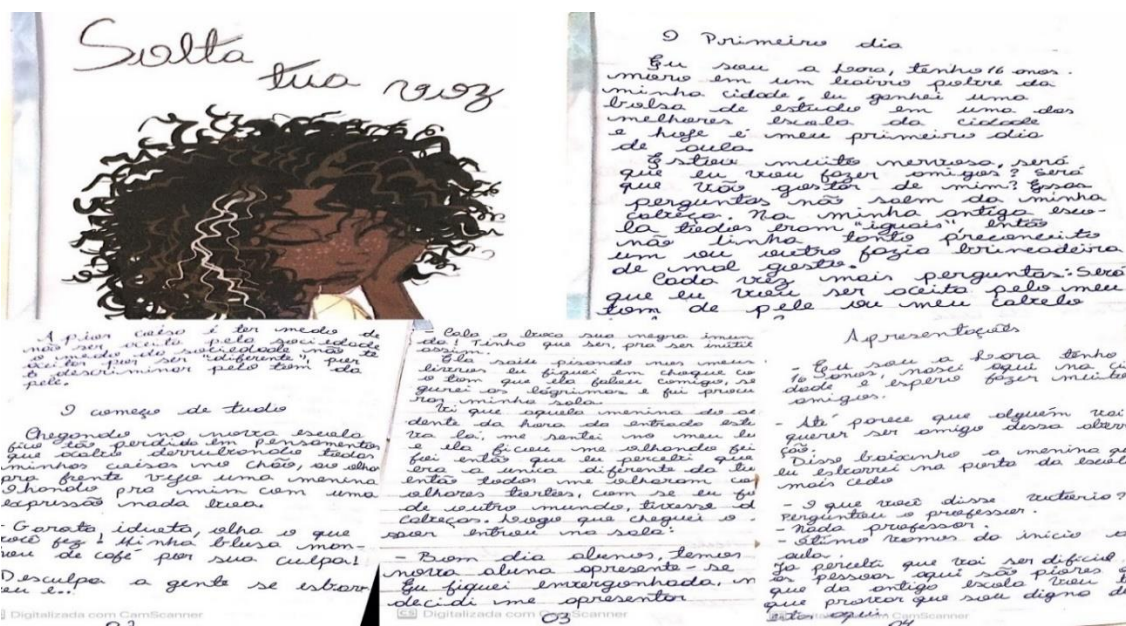 Solta
tua voz
O Primeiro dia
Eu sou a Lora, tenho 16 anos.
moro em um bairro pobre da
minha cidade, eu ganhei uma
bolsa de estudo em uma das
melhores escola da cidade
e hoje é meu primeiro dia
de aula.
Estou muito nervosa, será
que eu vou fazer amigos? Será
que vão gostar de mim? Essas
perguntas não saem da minha
cabeça. Na minha antiga esco-
la todos eram "iguais" então
não tinha tanto preconceito
um ou outro fazia brincadeira
de mal gosto.
Cada vez mais perguntas: Será
que eu vou ser aceita pelo meu
tom de pele ou meu cabelo
A pior coisa é ter medo de
não ser aceita pela sociedade
o medo da sociedade não te
aceitar por ser "diferente", por
te descriminar pelo tom da
pele.
O começo de tudo
Chegando na nova escola
fico tão perdida em pensamentos
que acabo derrubando todas
minhas coisas no chão, ao olha
pra frente vejo uma menina
olhando pra mim com uma
expressão nada boa.
- Garota idiota, olha o que
você fez! Minha blusa man-
chou de café por sua culpa!
Desculpa a gente se estbarr
ou e..!
Digitalizada com CamScanner
- Cala a boca sua negra imun
da! Tinha que ser, pra ser inútil
assim.
Ela saiu pisando nos meus
livros eu fiquei em choque co
o tom que ela falou comigo, se
gurei as lágrimas e fui procu
rar minha sala.
Vi que aquela menina do aci
dente da hora da entrada esta
va lá, me sentei no meu lu
e ela ficou me olhando fei
foi então que eu percebi que
era a unica diferente da tu
então todos me olharam co
olhares tortos, com se eu fo
de outro mundo, tivesse d
cabeças. Logo que cheguei o
ssor entrou na sala:
- Bom dia alunos, temos
nova aluna apresente-se
Eu fiquei envergonhada, m
decidi me apresentar
CS Digitalizada com CamScanner
03
Apresentações
- Eu sou a Lora tenho
16 anos, nasci aqui na ci
dade e espero fazer muito
amigos.
- Até porece que alguém vai
querer ser amigo dessa aberr
ção.
Disse baixinho a menina qu
eu esbarrei na porta da escola
mais cedo
- O que você disse victória?
Perguntou o professor.
- Nada professor.
- Ótimo vamos da inicio a
aula.
Ja percebi que vai ser dificil
as pessoas aqui são piores
que da antiga escola vou t
que provar que sou digna de
estar aqui.